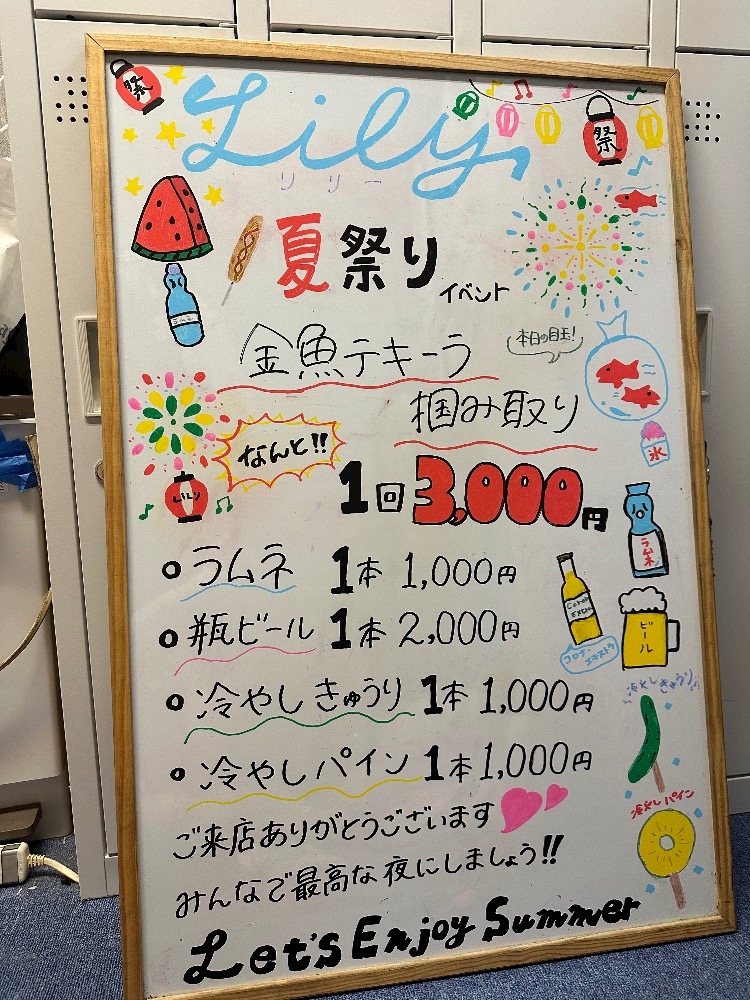 祭
Lily
祭
リリー
夏祭り
イベント
ラムネ
金魚テキーラ
本日の目玉!
掴み取り
氷
なんと!!
1回3,000円
リリィ
ラムネ
ラムネ 1本 1,000円
瓶ビール 1本 2,000円
Corona Extra
コロナエキストラ
ビール
冷やしきゅうり
冷やしきゅうり 1本 1,000円
冷やしパイン 1本 1,000円
冷やしパイン
ご来店ありがとうございます
みんなで最高な夜にしましょう!!
Let's Enjoy Summer